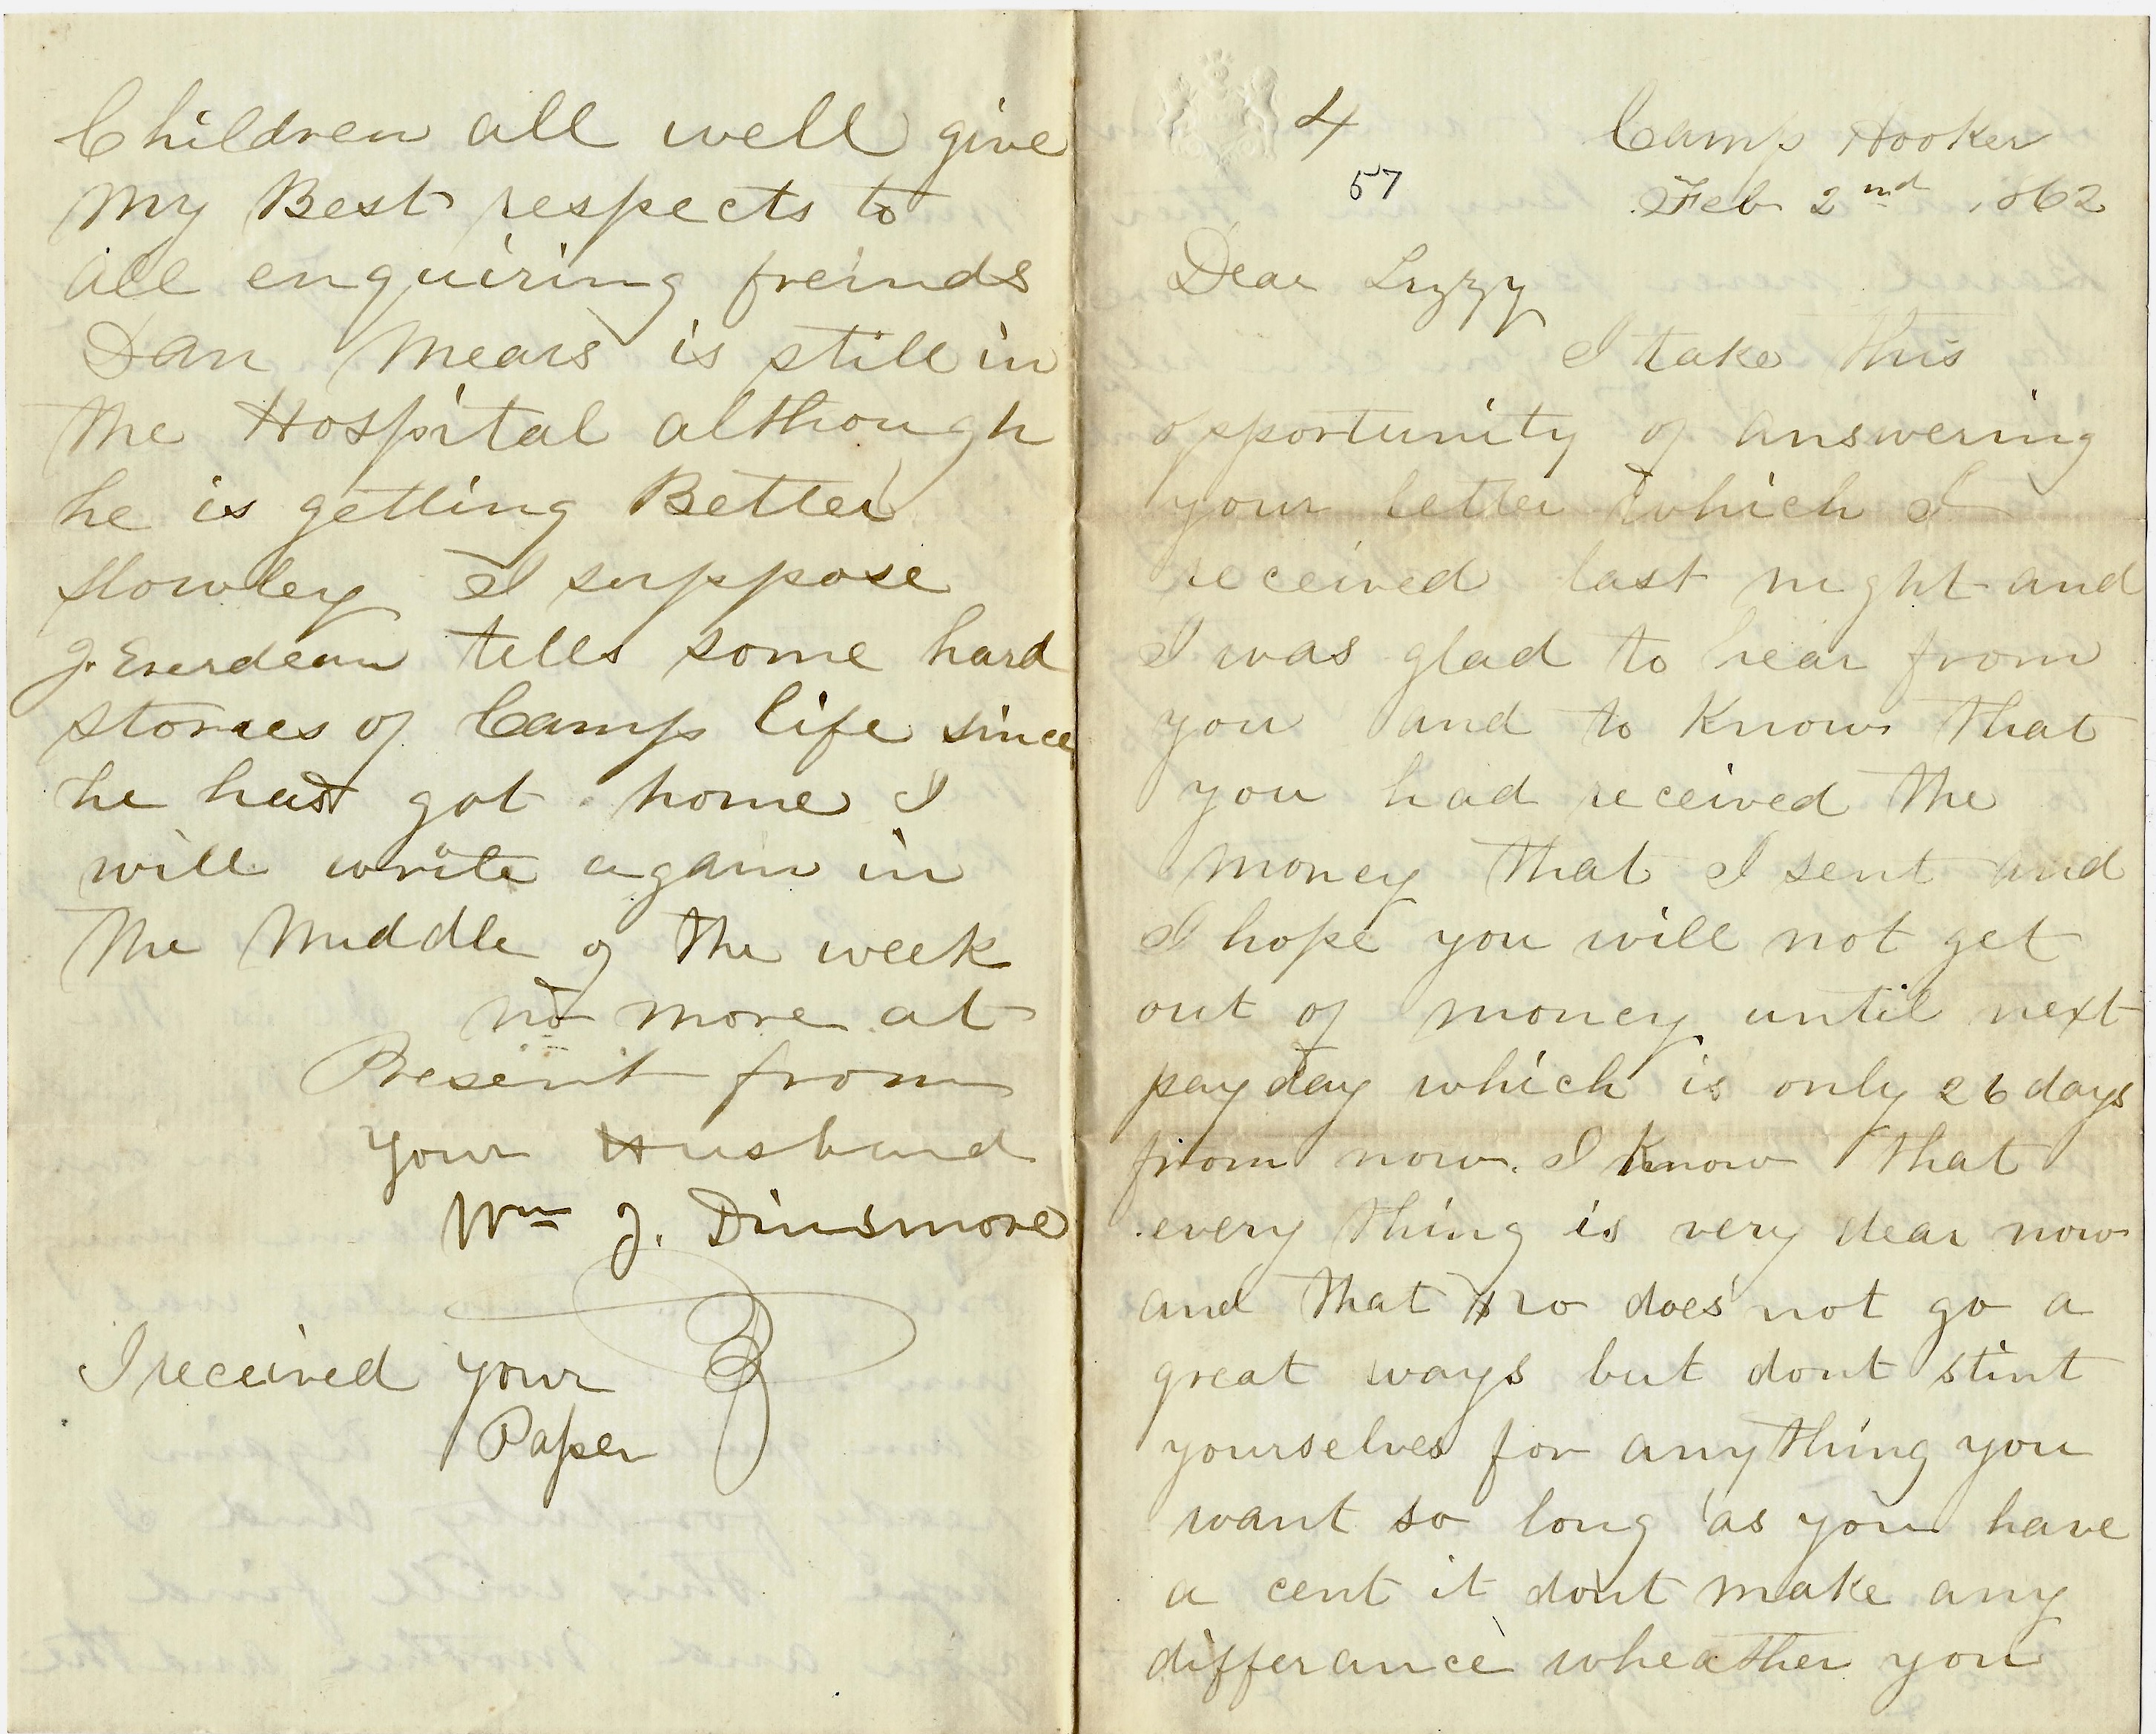 Children all well give
my Best respects to
all enquiring freinds
Dan Mears is still in
the Hospital although
he is getting Better
I suppose
J. Everdean tells some hard
stories of Camp life since
he has got home I
will write again in
the Middle of the week
no more at
Present from
your Husband
Wm J. Dinsmore
I received your
Paper
4
57
Camp Hooker
Feb 2nd 1862
Dear Lizzy
I take this
opportunity of answering
your letter which I
received last night and
I was glad to hear from
you and to Know that
you had received the
money that I sent and
I hope you will not get
out of money until next
pay day which is only 26 days
from now. I Know that
every thing is very dear now
and that $20 does not go a
great ways but dont stint
yourselves for any thing you
want so long as you have
a cent it dont make any
differance wheather you